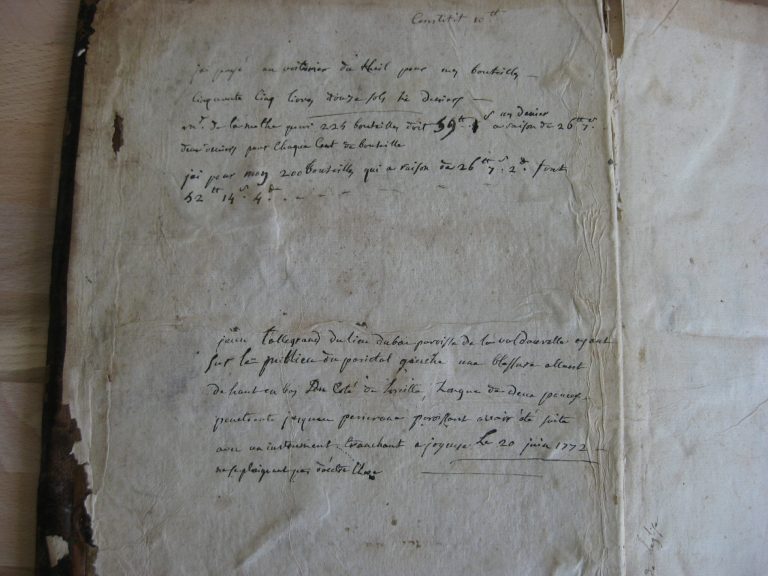 Constitit 10tt
jai payé au voiturier du theil pour mes bouteilles —
Cinquante Cinq livres douze sols deniers —
mr. de la mothe pour 225 bouteilles doit 59tt 1s un denier a raison de 26tt 7s.
deux deniers pour Chaque Cent de bouteille
jai pour moy 200 bouteilles qui a raison de 26tt 7s. 2d. font
52tt 14s. 4d.
jean tallegrand du lieu dubau paroisse de la valdauvelle ayant
sur le milieu du parietal gauche une blessure allant
de haut en bas Du Coté de loreille, Longue de deux pouces
penetrante jusquau pericrane paroissant avoir été faite
avec un instrument tranchant a joyeuse Le 20 juin 1772 —
ne se plaignent pas dautre Chose